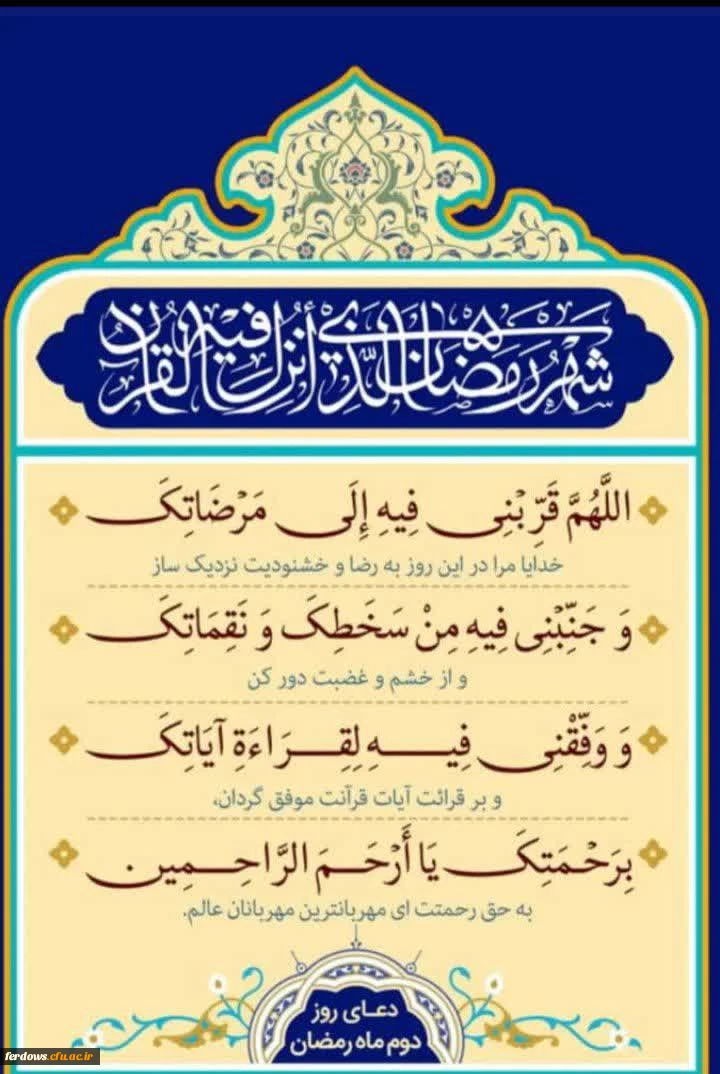 شهر رمضان الذی أنزل فیه القرآن
اللَّهُمَّ قَرِّبْنِی فِیهِ إِلَی مَرْضَاتِکَ
خدایا مرا در این روز به رضا و خشنودیت نزدیک ساز
وَ جَنِّبْنِی فِیهِ مِنْ سَخَطِکَ وَ نَقِمَاتِکَ
و از خشم و غضبت دور کن
وَ وَفِّقْنِی فِیهِ لِقِرَاءَةِ آیَاتِکَ
و بر قرائت آیات قرآنت موفق گردان،
بِرَحْمَتِکَ یَا أَرْحَمَ الرَّاحِمِین
به حق رحمتت ای مهربانترین مهربانان عالم.
دعای روز
دوم ماه رمضان
ferdows.cfu.ac.ir